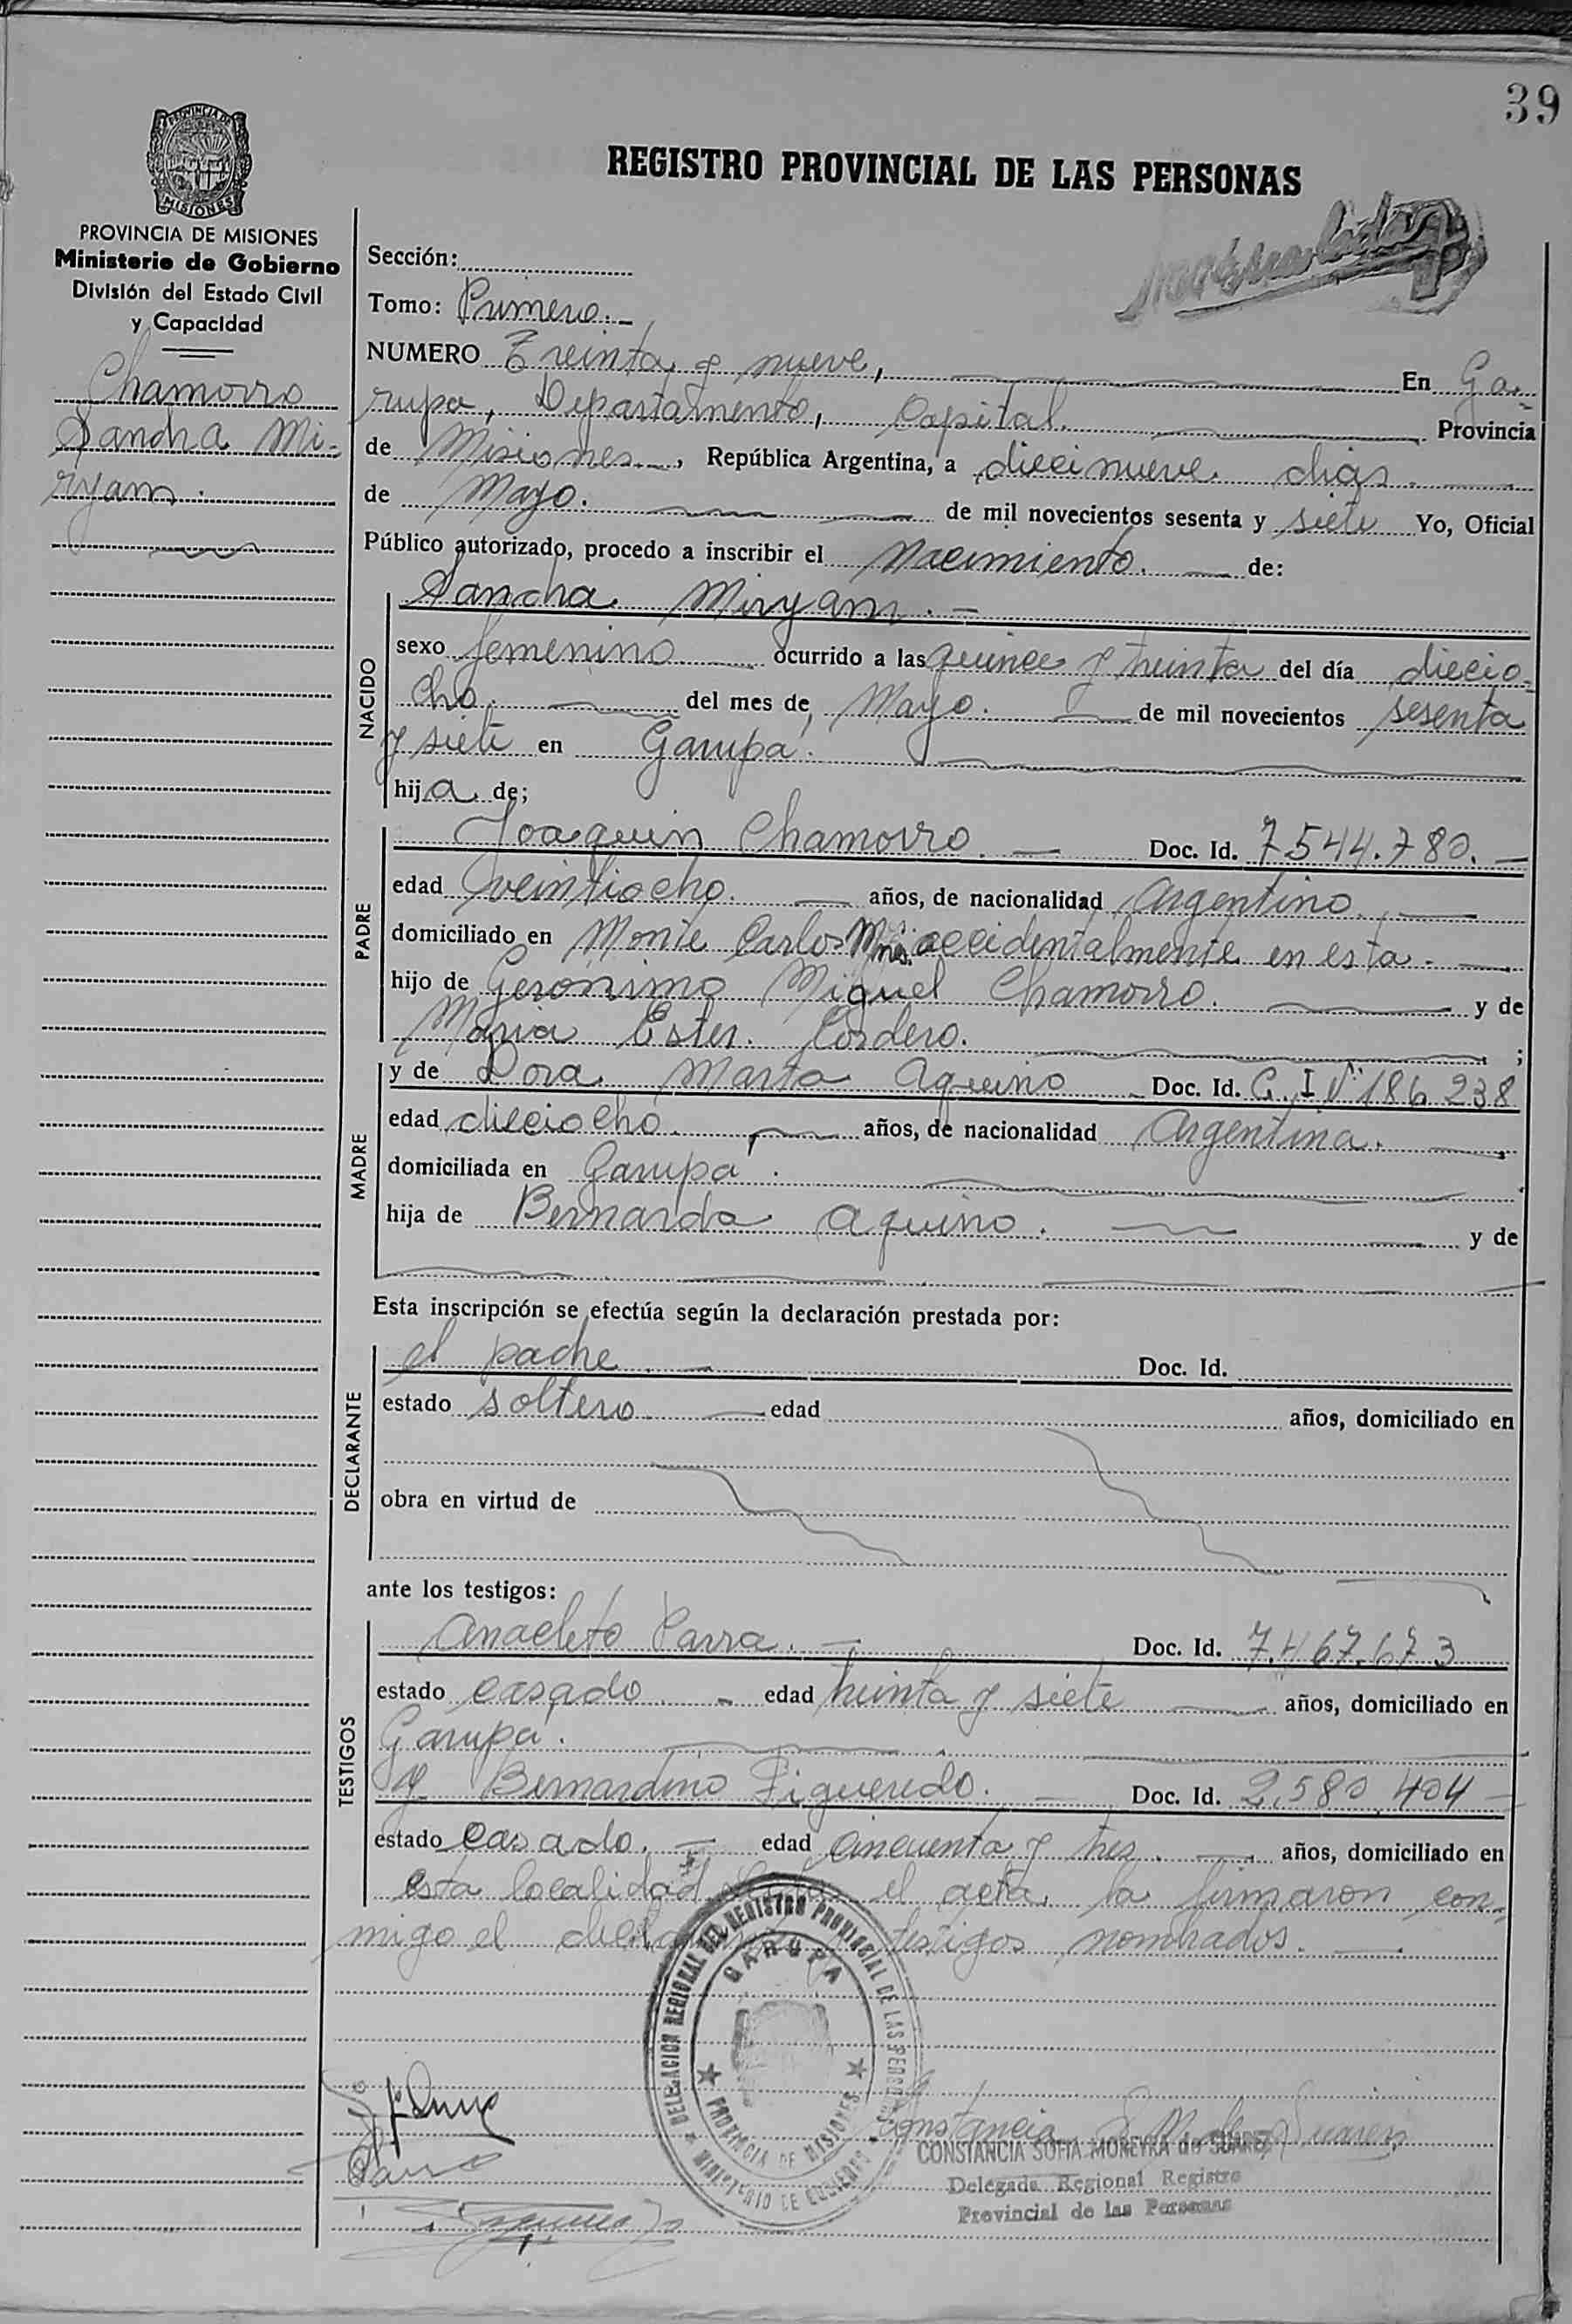 39
REGISTRO PROVINCIAL DE LAS PERSONAS
PROVINCIA DE MISIONES
Ministerio de Gobierno
División del Estado Civil
y Capacidad
Chamorro
Sandra Mi-
ryam.
Sección:
Tomo: Primero.
NUMERO Treinta y nueve, En Ga-
rupa, Departamento, Capital. Provincia
de Misiones, República Argentina, a diecinueve dias.
de Mayo. de mil novecientos sesenta y siete Yo, Oficial
Público autorizado, procedo a inscribir el Nacimiento. de:
Sandra Miryam.
NACIDO
sexo femenino ocurrido a las quince y treinta del día diecio-
cho. del mes de Mayo. de mil novecientos sesenta
y siete en Garupá.
hija de;
PADRE
Joaquin Chamorro. Doc. Id. 7544.780.
edad veintiocho. años, de nacionalidad Argentino.
domiciliado en Monte Carlos Mnes. accidentalmente en esta.
hijo de Gerónimo Miguel Chamorro. y de
Maria Ester. Cordero. ;
MADRE
y de Dora Marta Aquino Doc. Id. C. I Nº 186 238
edad dieciocho. años, de nacionalidad Argentina.
domiciliada en Garupá.
hija de Bernarda Aquino. y de
Esta inscripción se efectúa según la declaración prestada por:
DECLARANTE
el padre. Doc. Id.
estado soltero. edad años, domiciliado en
obra en virtud de
ante los testigos:
TESTIGOS
Anacleto Parra. Doc. Id. 7.467.673
estado casado. edad treinta y siete años, domiciliado en
Garupá.
y Bernardino Figueredo. Doc. Id. 2.580.404
estado casado. edad cincuenta y tres. años, domiciliado en
esta localidad el acta, la firmaron con-
migo el testigos nombrados.
DELEGACION REGIONAL DEL REGISTRO PROVINCIAL DE LAS PERSONAS
GARUPA
PROVINCIA DE MISIONES
MINISTERIO DE GOBIERNO
Constancia
CONSTANCIA SOFIA MOREYRA de SUAREZ
Delegada Regional Registro
Provincial de las Personas